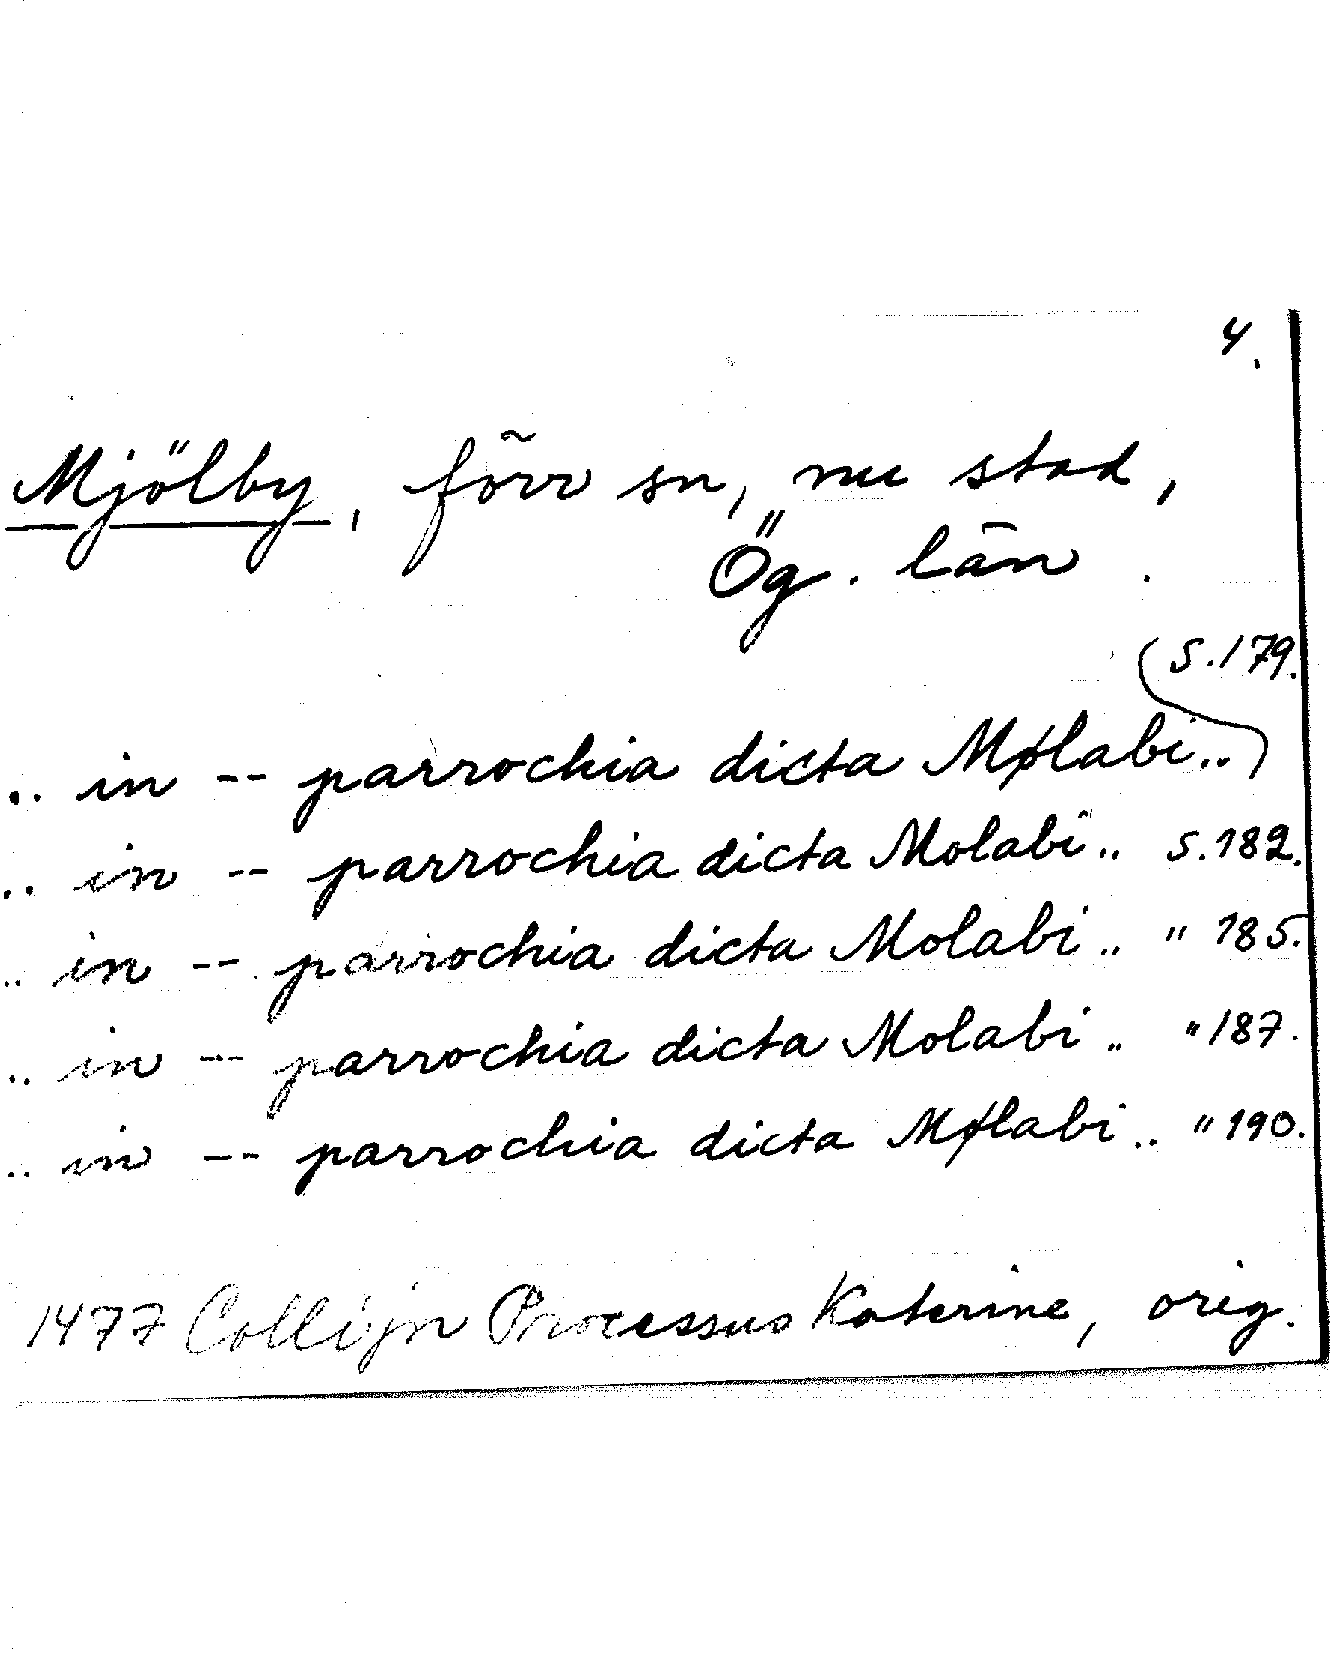 4.
Mjölby, förr sn, nu stad,
Ög. län.
(s. 179.
.. in -- parrochia dicta Mølabi..)
.. in -- parrochia dicta Molabi.. s. 182.
.. in -- parrochia dicta Molabi.. " 185.
.. in -- parrochia dicta Molabi.. " 187.
.. in -- parrochia dicta Mølabi.. " 190.
1477 Collijn Processus Katerine, orig.